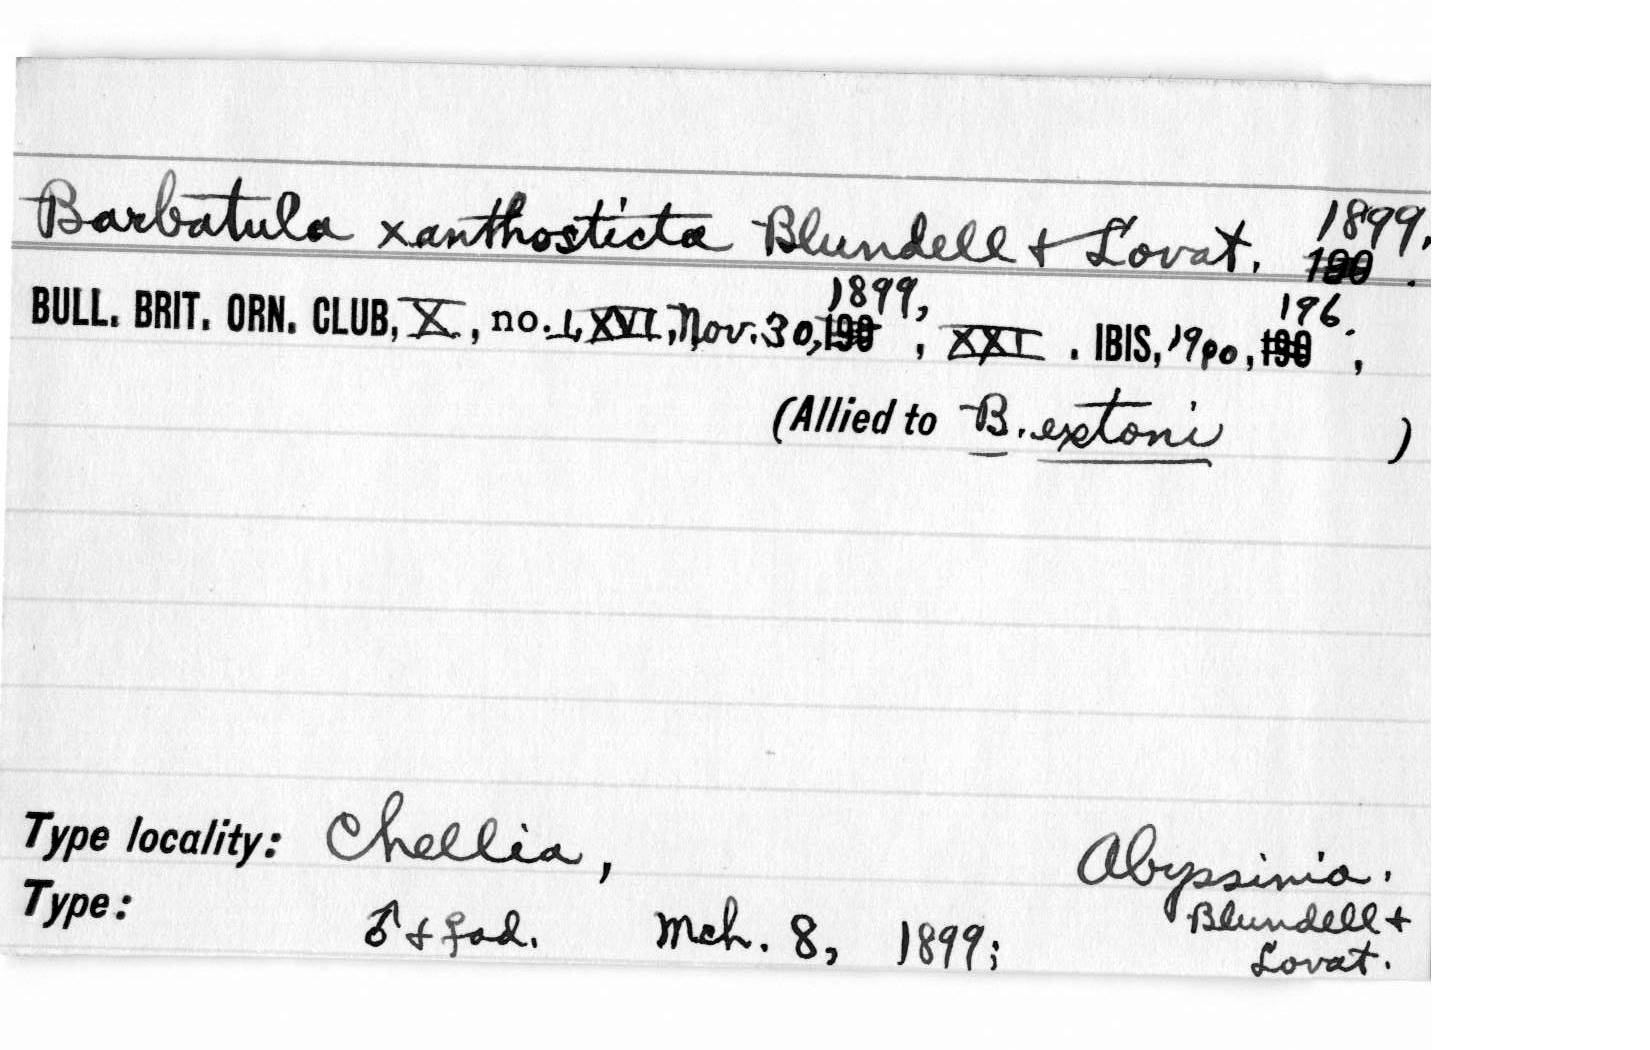 Barbatula xanthosticta Blundell & Lovat. 1899.
BULL. BRIT. ORN. CLUB, X, no. LXVI, Nov. 30, 1899, XXI. IBIS, 1900, 196.
(Allied to B. extoni )
Type locality: Chellia, Abyssinia.
Type: ♂ & ♀ ad. Mch. 8, 1899; Blundell & Lovat.